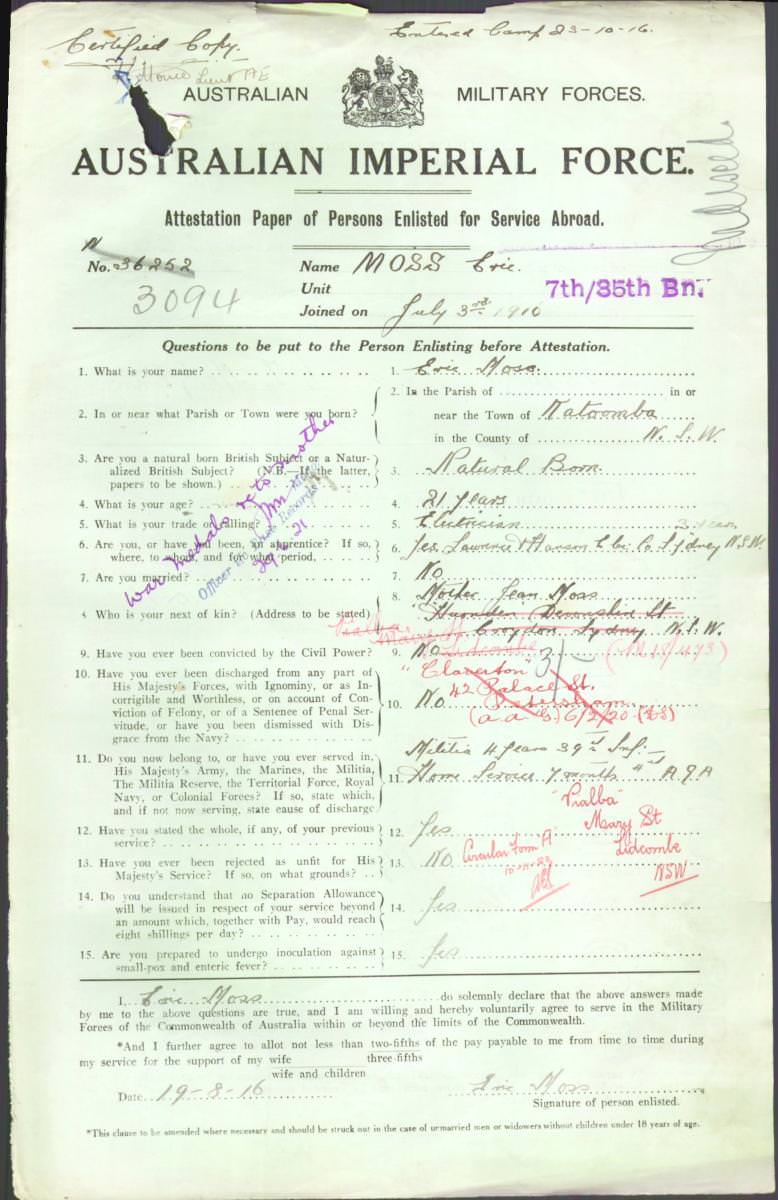 Certified Copy.
Entered Camp 23-10-16.
Lieut
AUSTRALIAN MILITARY FORCES.
AUSTRALIAN IMPERIAL FORCE.
Attestation Paper of Persons Enlisted for Service Abroad.
N
No. 36252
Name MOSS Eric.
3094
Unit 7th/35th Bn.
Joined on July 3rd 1916
Questions to be put to the Person Enlisting before Attestation.
1. What is your name?
1. Eric Moss.
2. In or near what Parish or Town were you born?
2. In the Parish of in or
near the Town of Katoomba
in the County of N. S. W.
3. Are you a natural born British Subject or a Natur-
alized British Subject? (N.B.—If the latter,
papers to be shown.)
3. Natural Born
4. What is your age?
4. 21 years
5. What is your trade or calling?
5. Electrician 3 years
6. Are you, or have you been, an apprentice? If so,
where, to whom, and for what period,
6. Yes. Lawrence & Hanson Elec. Co. Sydney N.S.W.
7. Are you married?
7. NO
8. Who is your next of kin? (Address to be stated)
8. Mother Jean Moss
Devonshire St
Croydon Sydney N.S.W.
Vialba
Lidcombe
9. Have you ever been convicted by the Civil Power?
9. NO
3/-
10. Have you ever been discharged from any part of
His Majesty's Forces, with Ignominy, or as In-
corrigible and Worthless, or on account of Con-
viction of Felony, or of a Sentence of Penal Ser-
vitude, or have you been dismissed with Dis-
grace from the Navy?
10. NO
"Claverton"
42 Palace St.
Petersham
6/2/20
11. Do you now belong to, or have you ever served in,
His Majesty's Army, the Marines, the Militia,
The Militia Reserve, the Territorial Force, Royal
Navy, or Colonial Forces? If so, state which,
and if not now serving, state cause of discharge
11. Militia 4 years 39th Inf.
Home Service 7 months A G A
12. Have you stated the whole, if any, of your previous
service?
12. Yes
"Vialba"
Mary St
Lidcombe
NSW
13. Have you ever been rejected as unfit for His
Majesty's Service? If so, on what grounds?
13. NO
Circular Form A
14. Do you understand that no Separation Allowance
will be issued in respect of your service beyond
an amount which, together with Pay, would reach
eight shillings per day?
14. Yes
15. Are you prepared to undergo inoculation against
small-pox and enteric fever?
15. Yes
war medals to mother
Officer i/c Base Records
I, Eric Moss do solemnly declare that the above answers made
by me to the above questions are true, and I am willing and hereby voluntarily agree to serve in the Military
Forces of the Commonwealth of Australia within or beyond the limits of the Commonwealth.
*And I further agree to allot not less than two-fifths of the pay payable to me from time to time during
three-fifths
my service for the support of my wife
wife and children
Date 19-8-16
Eric Moss
Signature of person enlisted.
*This clause to be amended where necessary and should be struck out in the case of unmarried men or widowers without children under 18 years of age.